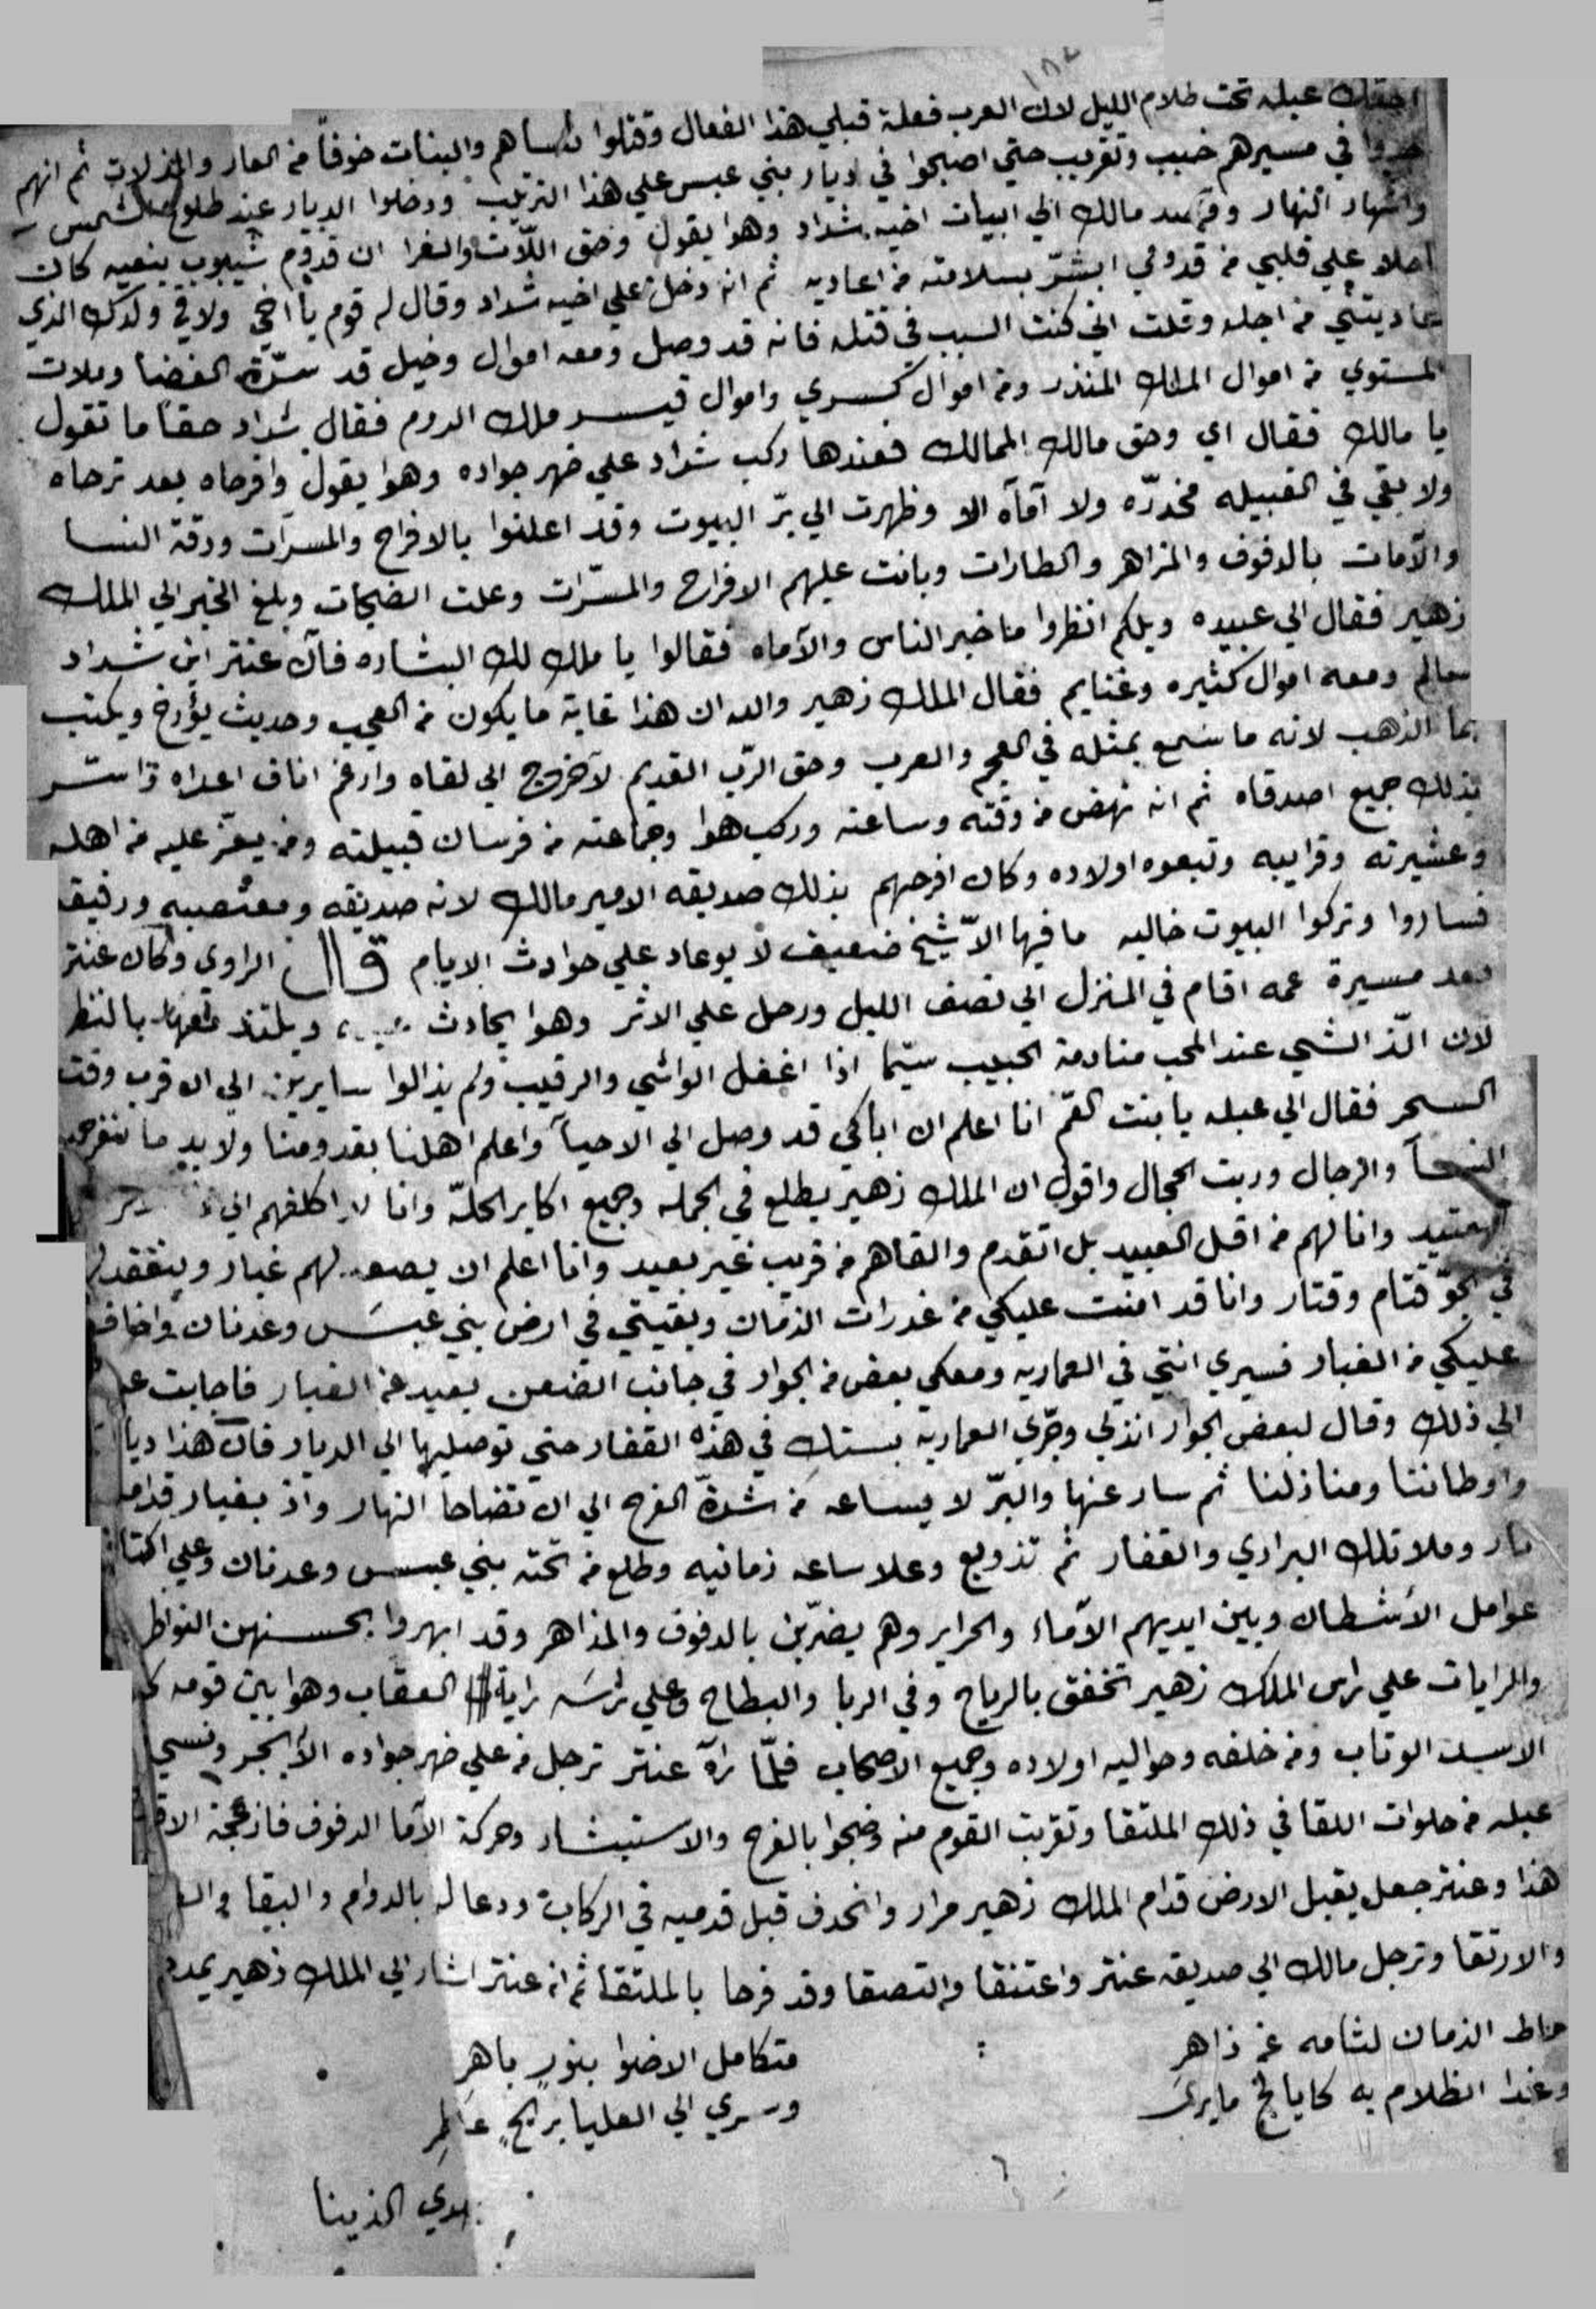 عبله تحت ظلام الليل لان العرب فعلة قبلي هذا الفعال وقتلوا نساهم والبنات خوفاً من العار والذلات ثم انهم
في مسيرهم خبب وتقريب حتي اصبحوا في ديار بني عبس علي هذا الترتيب ودخلوا الديار عند طلوع الشمس
واشهار النهار وقصد مالك الي ابيات اخيه شداد وهوا يقول وحق اللّات والغرا ان قدوم شيبوب بنعيه كان
احلا علي قلبي من قدومي ابشّر بسلامته من اعاديه ثم انه دخل علي اخيه شداد وقال له قوم يا اخي ولاقي ولدك الذي
عاديتني من اجله وقلت اني كنت السبب في قتله فانه قد وصل ومعه اموال وخيل قد سدّة الفضا وملات
المستوي من اموال الملك المنذر ومن اموال كسري واموال قيسر ملك الروم فقال شداد حقاً ما تقول
يا مالك فقال اي وحق مالك الممالك فعندها ركب شداد علي ضهر جواده وهوا يقول وافرحاه بعد ترحاه
ولا بقي في القبيله مخدرّه ولا آمآه الا وظهرت الي برّ البيوت وقد اعلنوا بالافراح والمسرّات ودقة النسا
والآمات بالدفوف والمزاهر والطارات وبانت عليهم الافراح والمسرّات وعلت الضجات وبلغ الخبر الي الملك
زهير فقال الي عبيده ويلكم انظروا ما خبر الناس والآماه فقالوا يا ملك لك البشاره فآن عنتر ابن شداد
سالم ومعه اموال كثيره وغنايم فقال الملك زهير والله ان هذا غاية ما يكون من العجب وحديث يؤرخ ويكتب
بما الذهب لانه ما سمع بمثله في العجم والعرب وحق الرّب القديم لآخروج الي لقاه وارغم اناف اعداه واسّر
بذلك جميع اصدقاه ثم انه نهض من وقته وساعته وركب هوا وجماعته من فرسان قبيلته ومن يعّز عليه من اهله
وعشيرته وقرايبه وتبعوه اولاده وكان افرحهم بذلك صديقه الامير مالك لانه صديقه ومعتصبه ورفيقه
فساروا وتركوا البيوت خاليه ما فيها الاّ شيخ ضعيف لا يوعاد علي حوادث الايام قال الراوي وكان عنتر
بعد مسيرة عمه اقام في المنزل الي نصف الليل ورحل علي الاثر وهوا يحادث ويلتذ معها بالنظر
لان الّذ الشي عند المحب منادمة الحبيب سيّما اذا اغفل الواشي والرقيب ولم يذالوا سايرين الي ان قرب وقت
السحر فقال الي عبله يا بنت العّم انا اعلم ان اباكي قد وصل الي الاحيآ واعلم اهلنا بقدومنا ولابد ما تنفرج
النسآ والرجال وربت الحجال واقول ان الملك زهير يطلع في الجمله وجميع اكابر الحلّه وانا لا اكلفهم الي
وانا لهم من اقل العبيد بل اتقدم والقاهم من قريب غير بعيد وانا اعلم ان يصعد لهم غبار وينعقد
في الجّو قتام وقتار وانا قد امنت عليكي من غدرات الزمان وبقيتي في ارض بني عبس وعدنان واخاف
عليكي من الغبار فسيري انتي في العماريه ومعكي بعض من الجوار في جانب الضعن بعيد عن الغبار فاجابت
الي ذلك وقال لبعض الجوار انزلي وجّري العماريه بستك في هذه القفار حتي توصليها الي الديار فان هذا
واوطاننا ومنازلنا ثم سار عنها والبّر لا يساعه من شدة الفرح الي ان تضاحا النهار واذ بغبار قدامه
ثار وملا تلك البراري والقفار ثم تزوبع وعلا ساعه زمانيه وطلع من تحته بني عبس وعدنان وعلي
عوامل الأشطان وبين ايديهم الآماء والحراير وهم يضرّبن بالدفوف والمذاهر وقد ابهروا بحسنهن النواظر
والرايات علي راس الملك زهير تخفق بالرياح وفي الربا والبطاح وعلي راسه راية العقاب وهوا بين قومه
الاسد الوتاب ومن خلفه وحواليه اولاده وجميع الاصحاب فلّما رآه عنتر ترجل من علي ضهر جواده الأبجر ونسي
عبله من حلوات اللقا في ذلك الملتقا وتقربت القوم منه وضجوا بالفرح والاستبشار وحركة الآما الدفوف فازعجة
هذا وعنتر جعل يقبل الارض قدام الملك زهير مرار وانحدف قبل قدميه في الركاب ودعا له بالدوام والبقا
والارتقا وترجل مالك الي صديقه عنتر واعتنقا والتصقا وقد فرحا بالملتقا ثم انه عنتر اشار الي الملك زهير يمدح
حاط الزمان لثامه عن ذاهرِ متكامل الاضوا بنورٍ باهرِ
وغدا الظلام به وسري الي العليا بريحٍ عاطرِ